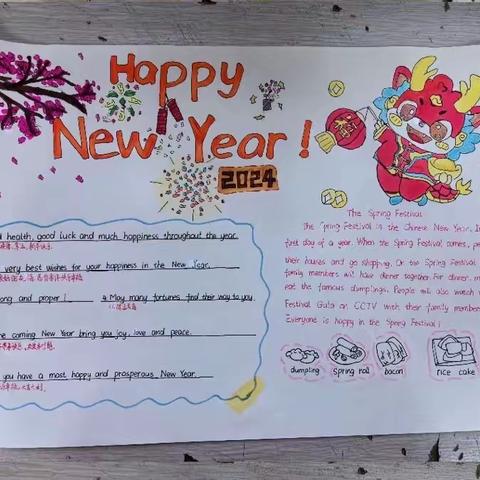 Happy
New Year!
2024
health, good luck and much happiness throughout the year.
very best wishes for your happiness in the New Year.
ong and proper!
4. May many fortunes find their way to you.
e coming New Year bring you joy, love and peace.
you have a most happy and prosperous New Year.
The Spring Festival
the Spring Festival is the Chinese New Year.
first day of a year. When the Spring Festival comes,
their houses and go shopping. On the Spring Festival
family members will have dinner together. For dinner,
eat the famous dumplings. People will also watch
Festival Gala on CCTV with their family members
Everyone is happy in the Spring Festival!
dumpling
spring roll
bacon
rice cake